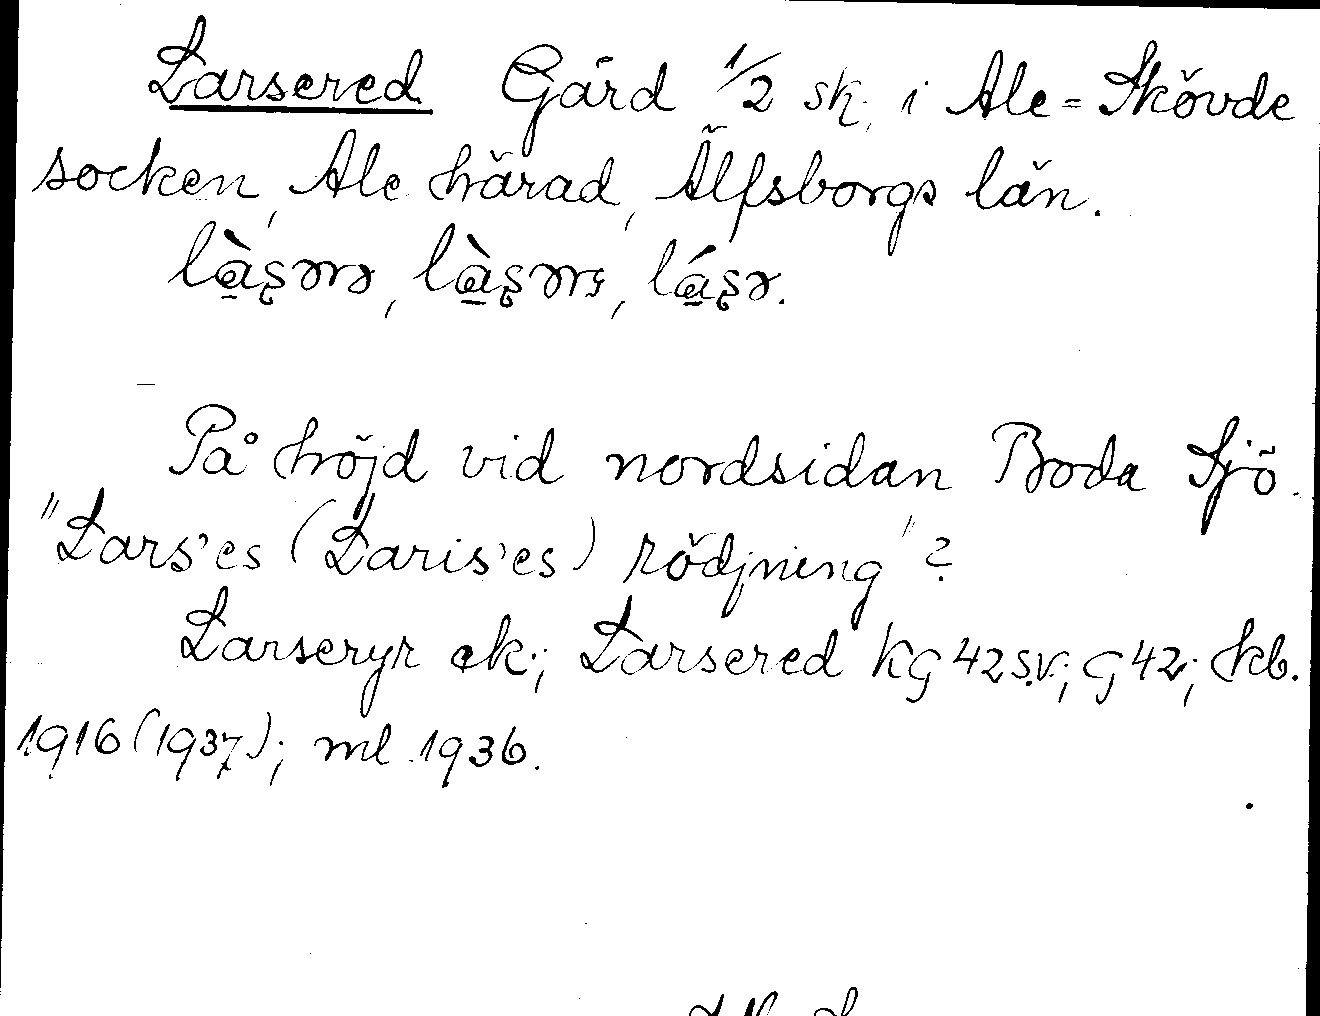 Larsered Gård 1/2 sk. i Ale-Skövde
socken, Ale härad, Älfsborgs län.
På höjd vid nordsidan Boda Sjö.
"Lars'es (Laris'es) rödjning"?
Larseryr ek; Larsered KG 42 s.v.; G 42; kb.
1916 (1937); ml 1936.